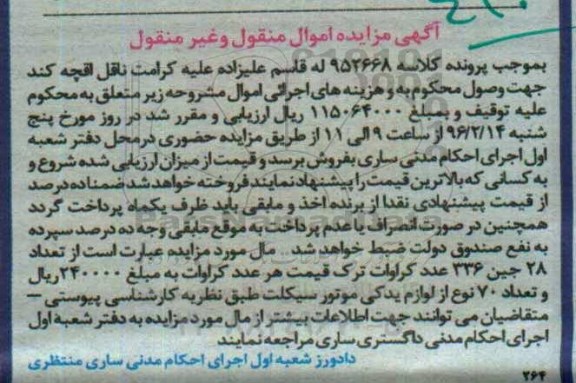 آگهی مزایده اموال منقول وغیر منقول
بموجب پرونده کلاسه ۹۵۲۶۶۸ له قاسم علیزاده علیه کرامت ناقل اقچه کند
جهت وصول محکوم به و هزینه های اجرائی اموال مشروحه زیر متعلق به محکوم
علیه توقیف و بمبلغ ۱۱۵۰۶۴۰۰۰ ریال ارزیابی و مقرر شد در روز مورخ پنج
شنبه ۹۶/۲/۱۴ از ساعت ۹ الی ۱۱ از طریق مزایده حضوری درمحل دفتر شعبه
اول اجرای احکام مدنی ساری بفروش برسد و قیمت از میزان ارزیابی شده شروع و
به کسانی که بالاترین قیمت را پیشنهاد نمایند فروخته خواهد شد ضمنا ده درصد
از قیمت پیشنهادی نقدا از برنده اخذ و مابقی باید ظرف یکماه پرداخت گردد
همچنین در صورت انصراف یا عدم پرداخت به موقع مابقی وجه ده درصد سپرده
به نفع صندوق دولت ضبط خواهد شد . مال مورد مزایده عبارت است از تعداد
۲۸ جین ۳۳۶ عدد کراوات ترک قیمت هر عدد کراوات به مبلغ ۲۴۰۰۰۰ریال
و تعداد ۷۰ نوع از لوازم یدکی موتور سیکلت طبق نظریه کارشناسی پیوستی –
متقاضیان می توانند جهت اطلاعات بیشتر از مال مورد مزایده به دفتر شعبه اول
اجرای احکام مدنی دادگستری ساری مراجعه نمایند
دادورز شعبه اول اجرای احکام مدنی ساری منتظری
۲۶۴